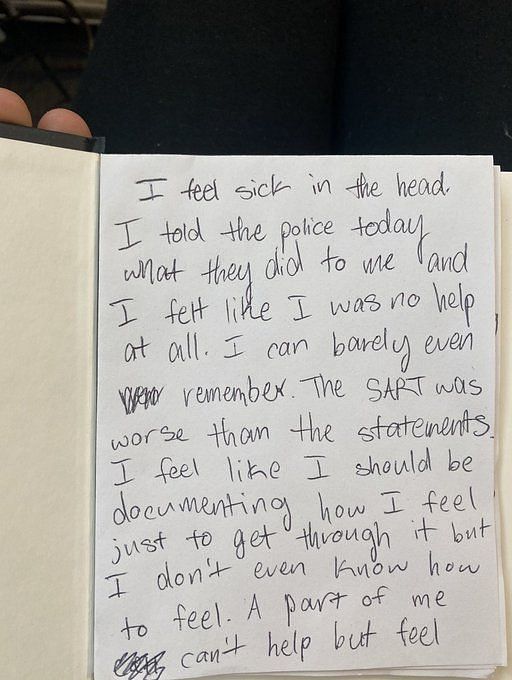 I feel sick in the head.
I told the police today
what they did to me and
I felt like I was no help
at all. I can barely even
remember. The SART was
worse than the statements.
I feel like I should be
documenting how I feel
just to get through it but
I don't even know how
to feel. A part of me
can't help but feel